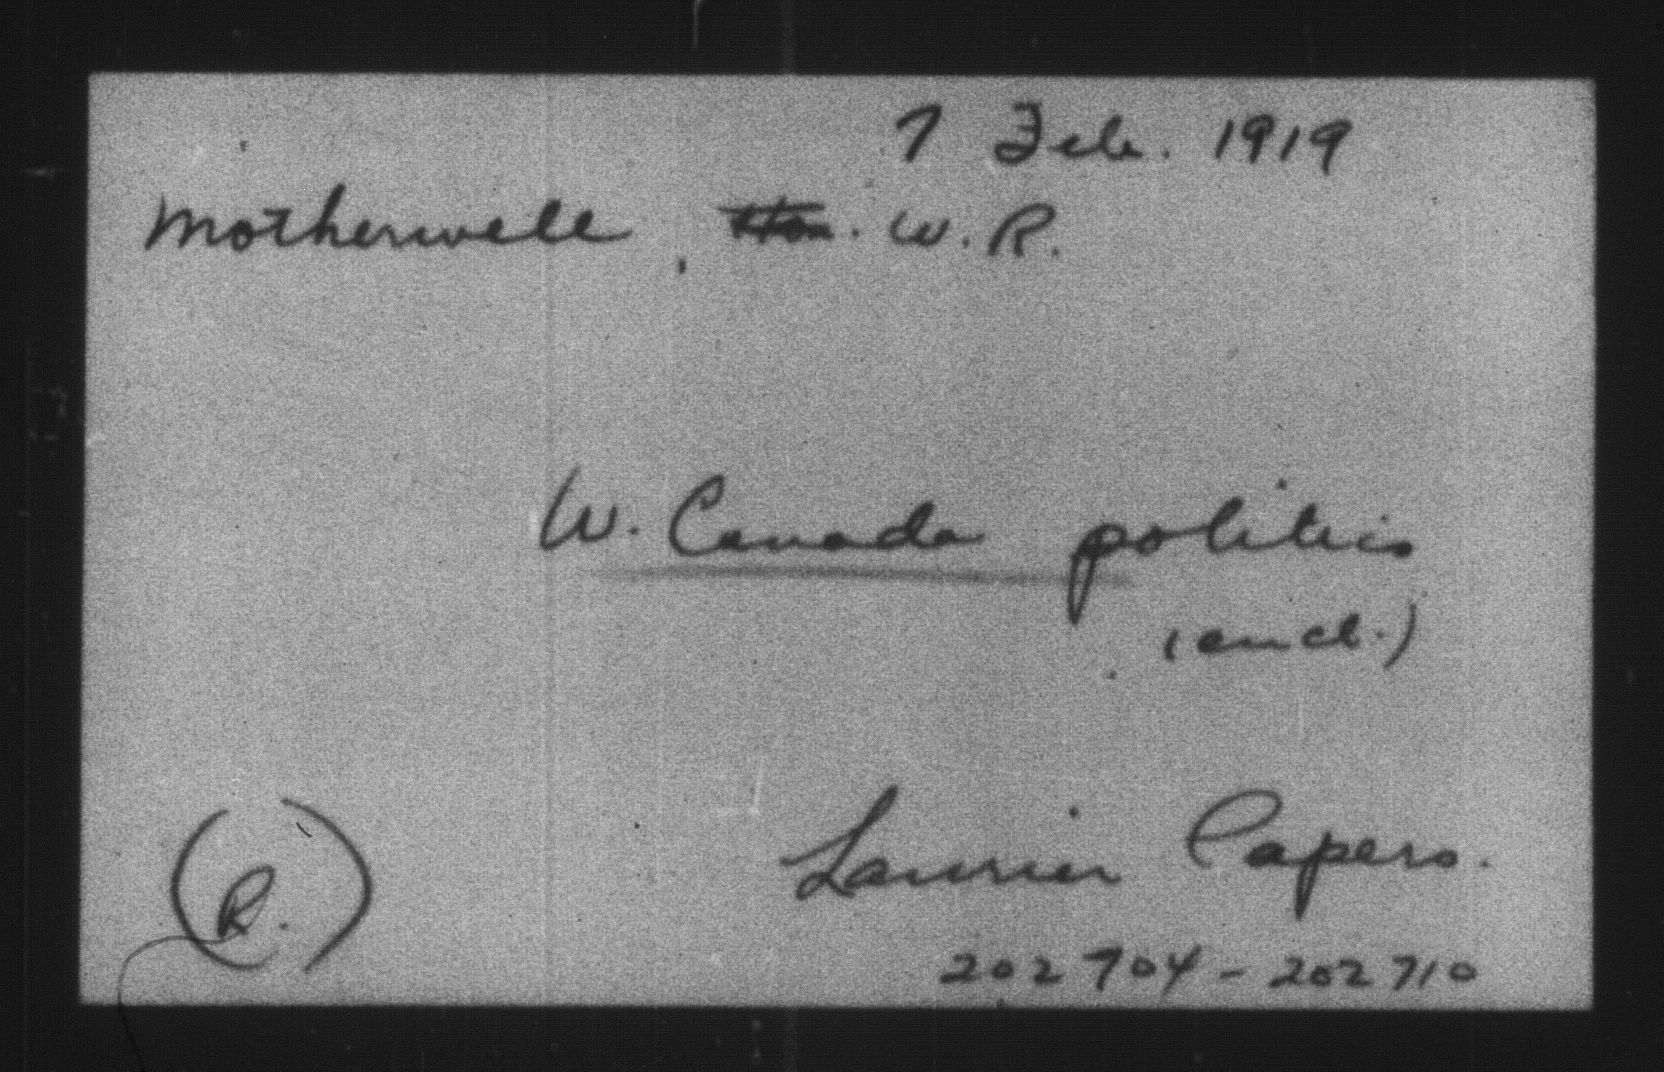 7 Feb. 1919
Motherwell, Hon. W. R.
W. Canada politics
(encl.)
(R.)
Laurier Papers.
202704 - 202710